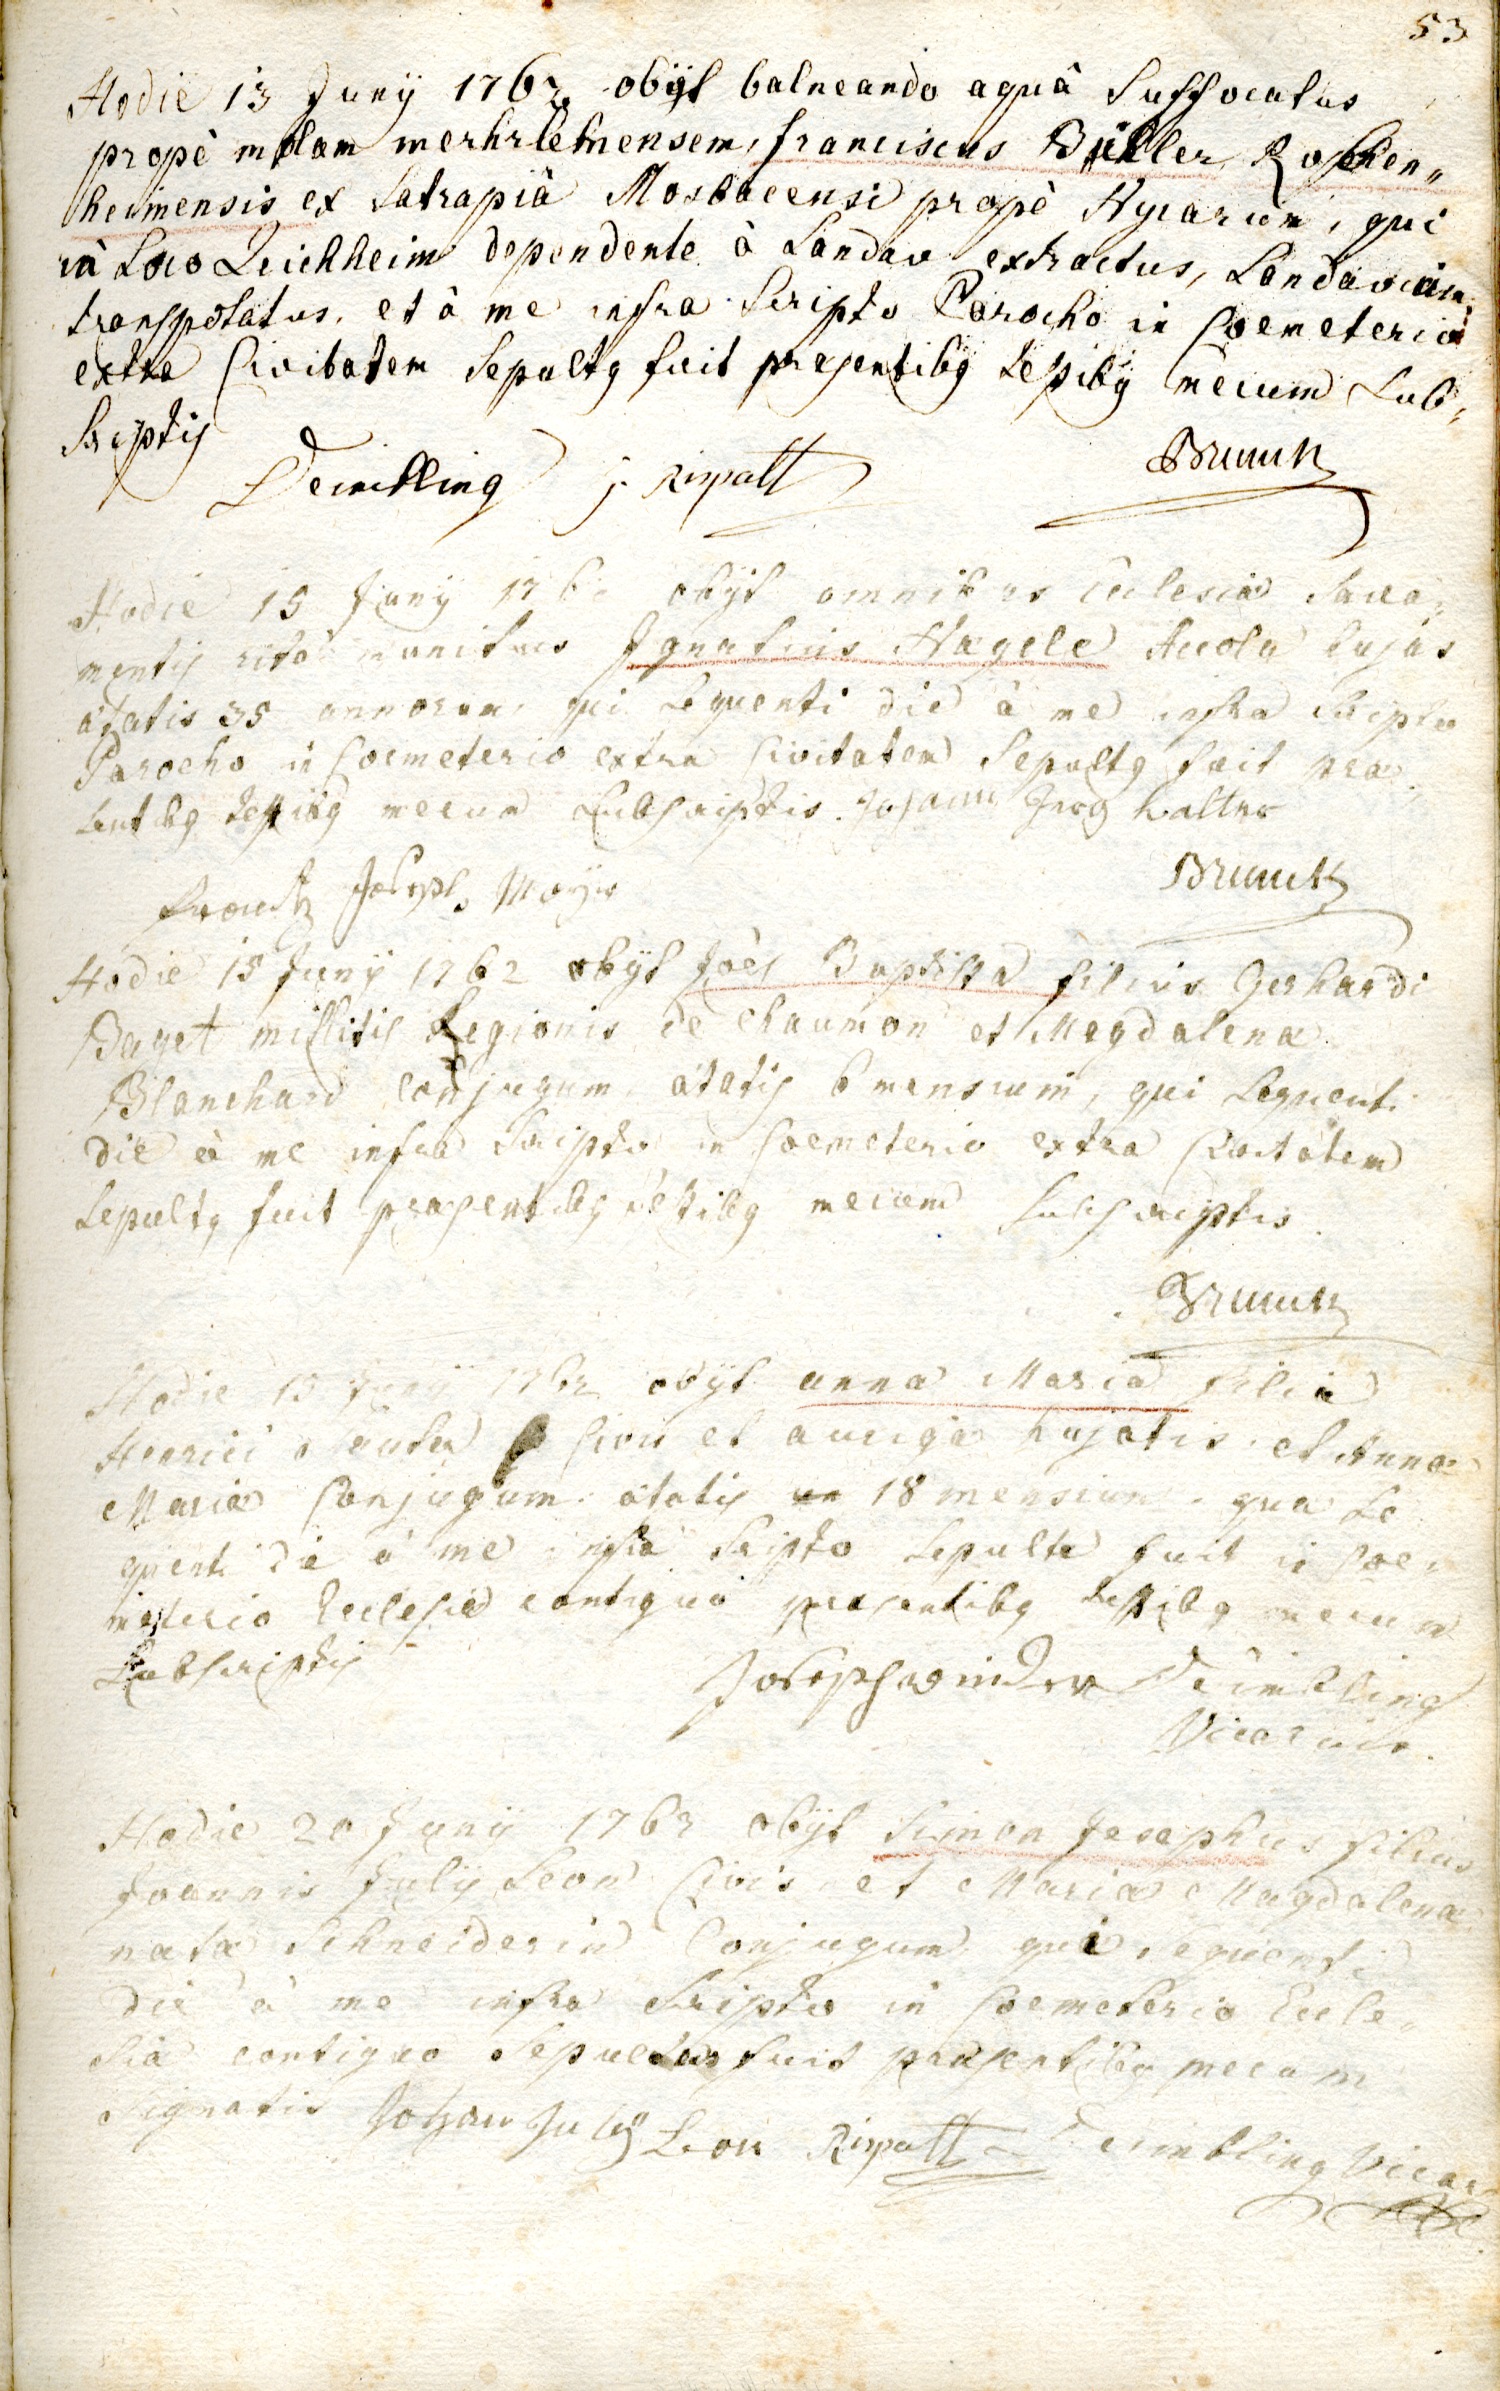 53
Hodie 13 Junÿ 1762 obÿt balneando aquâ suffocatus
propè molam merhrlehnensem, franciscus Büller, Rothen„
heimensis ex satrapiâ Mosbacensi propè Nycarum, qui
in Loco Queichheim dependente à Landav extractus, Landaviam
transpotatus, et à me infra scripto Parocho in Coemeterio
extra Civitatem sepultq fuit præsentibq testibq mecum sub„
scriptis
Deimbling J. Ripatt Brunck
Hodie 15 Junÿ 176 obÿt omnibus Ecclesiæ Sacra„
mentis ritè munitus Ignatius Hagele Accola hujas
ætatis 35 annorum, qui sequenti die à me infra scripto
Parocho in Coemeterio extra Civitatem sepultq fuit præ„
sentibq testibq mecum subscriptis. Johann Jerg walter
Frantz Joseph Mayer Brunck
Hodie 15 Junÿ 1762 obÿt Joês Baptista filius Gerhardi
Baget millitis Legionis de Chaumon et Magdalena
Blanchard conjugum, ætatis 6 mensium, qui sequenti
die à me infra scripto in Coemeterio extra Civitatem
sepultq fuit præsentibq testibq mecum subscriptis.
Brunck
Hodie 15 Junÿ 1762 obÿt anna Maria filia
Henrici Civis et aurigæ hujatis et Annæ
Mariæ Conjugum. ætatis 18 mensium. quæ se
quenti die à me infra scripto sepulta fuit in Coe„
meterio Ecclesiæ contiguo præsentibq testibq mecum
subscriptis
Joseph Deimbling
Vicarius.
Hodie 20 Junÿ 1762 obÿt Simon Josephus filius
Joannis Julÿ Leon Civis, et Mariæ Magdalena
nata Schneiderin Conjugum, qui sequenti
die à me infra scripto in Coemeterio Eccle„
siæ contiguo sepultus fuit præsentibq mecum
signatis Johan Julÿ Leon Ripatt Deimbling Vicar